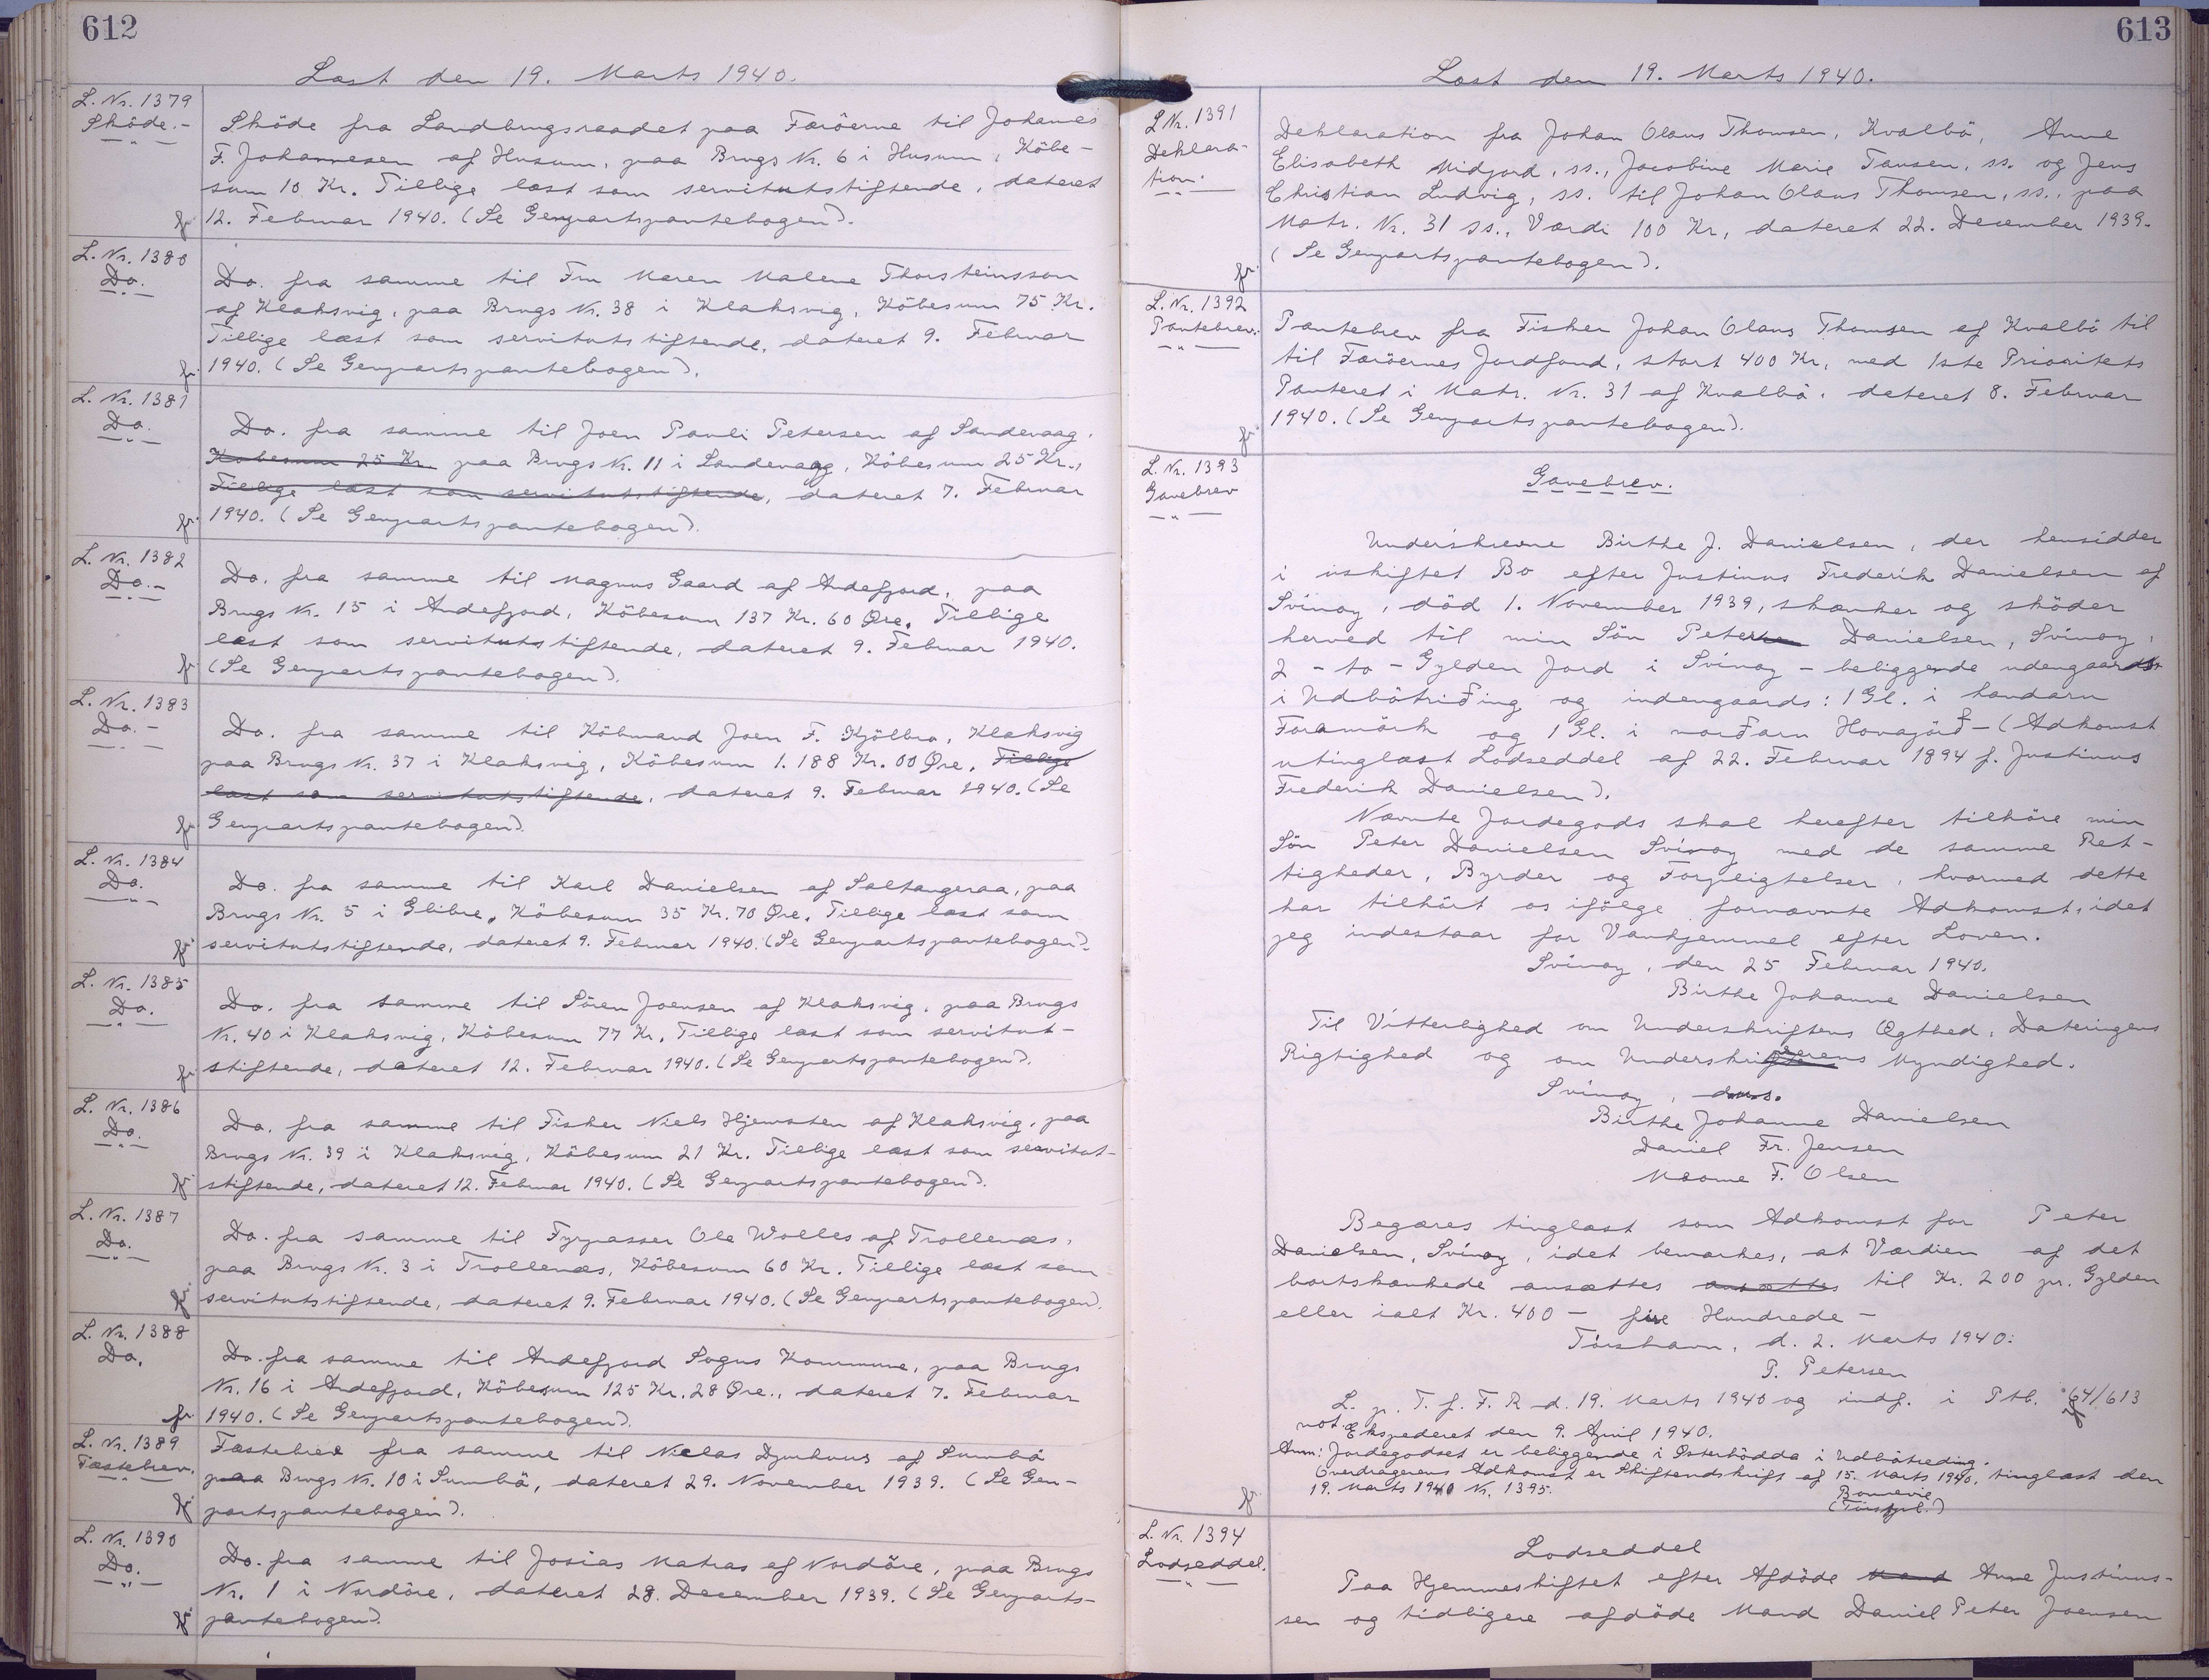 612
Læst den 19. Marts 1940.
L. Nr. 1379
Sköde.-
Sköde fra Landbrugsraadet paa Færöerne til Johannes
F. Johannesen af Husum, paa Brugs Nr. 6 i Husum, Köbe-
sum 10 Kr. Tillige læst som servitutstiftende, dateret
12. Februar 1940. (Se Genpartspantebogen).
L. Nr. 1380
Do.
Do. fra samme til Fru Maren Malene Thorsteinsson
af Klaksvig, paa Brugs Nr. 38 i Klaksvig, Köbesum 75 Kr.
Tillige læst som servitutstiftende, dateret 9. Februar
1940. (Se Genpartspantebogen).
L. Nr. 1381
Do.
Do. fra samme til Joen Pauli Petersen af Sandevaag,
Köbesum 25 Kr. paa Brugs Nr. 11 i Sandevaag, Köbesum 25 Kr.,
Tillige læst som servitutstiftende, dateret 7. Februar
1940. (Se Genpartspantebogen).
L. Nr. 1382
Do.-
Do. fra samme til Magnus Gaard af Andefjord, paa
Brugs Nr. 15 i Andefjord, Köbesum 137 Kr. 60 Øre, Tillige
læst som servitutstiftende, dateret 9. Februar 1940.
(Se Genpartspantebogen).
L. Nr. 1383
Do.-
Do. fra samme til Köbmand Joen F. Kjölbro, Klaksvig
paa Brugs Nr. 37 i Klaksvig, Köbesum 1.188 Kr. 00 Øre, Tillige
læst som servitutstiftende, dateret 9. Februar 1940. (Se
Genpartspantebogen).
L. Nr. 1384
Do.
Do. fra samme til Karl Danielsen af Saltangeraa, paa
Brugs Nr. 5 i Glibre, Köbesum 35 Kr. 70 Øre, Tillige læst som
servitutstiftende, dateret 9. Februar 1940. (Se Genpartspantebogen).
L. Nr. 1385
Do.
Do. fra samme til Sören Joensen af Klaksvig, paa Brugs
Nr. 40 i Klaksvig, Köbesum 77 Kr. Tillige læst som servitut-
stiftende, dateret 12. Februar 1940. (Se Genpartspantebogen).
L. Nr. 1386
Do.
Do. fra samme til Fisker Niels Hjemsten af Klaksvig, paa
Brugs Nr. 39 i Klaksvig, Köbesum 21 Kr. Tillige læst som servitut-
stiftende, dateret 12. Februar 1940. (Se Genpartspantebogen).
L. Nr. 1387
Do.
Do. fra samme til Fyrpasser Ole Wolles af Trollenæs,
paa Brugs Nr. 3 i Trollenæs, Köbesum 60 Kr. Tillige læst som
servitutstiftende, dateret 9. Februar 1940. (Se Genpartspantebogen).
L. Nr. 1388
Do.
Do. fra samme til Andefjord Sogns Kommune, paa Brugs
Nr. 16 i Andefjord, Köbesum 125 Kr. 28 Øre., dateret 7. Februar
1940. (Se Genpartspantebogen).
L. Nr. 1389
Fæstebrev.
Fæstebrev fra samme til Niclas Djurhuus af Sumbö
paa Brugs Nr. 10 i Sumbö, dateret 29. November 1939. (Se Gen-
partspantebogen).
L. Nr. 1390
Do.
Do. fra samme til Josias Matras af Nordöre, paa Brugs
Nr. 1 i Nordöre, dateret 28. December 1939. (Se Genparts-
pantebogen).
613
Læst den 19. Marts 1940.
L Nr. 1391
Deklara-
tion.
Deklaration fra Johan Olaus Thomsen, Kvalbö, Anne
Elisabeth Midjord, ss., Jacobine Marie Tausen, ss. og Jens
Christian Ludvig, ss. til Johan Olaus Thomsen, ss., paa
Matr. Nr. 31 ss., Værdi 100 Kr, dateret 22. December 1939.
(Se Genpartspantebogen).
L. Nr. 1392
Pantebrev.
Pantebrev fra Fisker Johan Olaus Thomsen af Kvalbö til
til Færöernes Jordfond, stort 400 Kr, med 1ste Prioritets
Panteret i Matr. Nr. 31 af Kvalbö, dateret 8. Februar
1940. (Se Genpartspantebogen).
L. Nr. 1393
Gavebrev
Gavebrev.
Underskrevne Birthe J. Danielsen, der hensidder
i uskiftet Bo efter Justinus Frederik Danielsen af
Svinoy, död 1. November 1939, skænker og sköder
herved til min Sön Peter Danielsen, Svinoy,
2 - to - Gylden Jord i Svinoy - beliggende udengaards
i Udbötriđing og indengaards: 1 Gl. i handaru
Foramörk og 1 Gl. i norđaru Hovajörđ - (Adkomst
utinglæst Lodseddel af 22. Februar 1894 f. Justinus
Frederik Danielsen).
Nævnte Jordegods skal herefter tilhöre min
Sön Peter Danielsen Svinoy med de samme Ret-
tigheder, Byrder og Forpligtelser, hvormed dette
har tilhört os ifölge fornævnte Adkomst, idet
jeg indestaar for Vanhjemmel efter Loven.
Svinoy, den 25 Februar 1940.
Birthe Johanne Danielsen
Til Vitterlighed om Underskriftens Ægthed, Dateringens
Rigtighed og om Underskriverens Myndighed.
Svinoy, d.u.s.
Birthe Johanne Danielsen
Daniel Fr. Jensen
F. Olsen
Begæres tinglæst som Adkomst for Peter
Danielsen, Svinoy, idet bemærkes, at Værdien af det
bortskænkede ansættes ansættes til Kr. 200 pr. Gylden
eller ialt Kr. 400 - fire Hundrede -
Tórshavn, d. 2. Marts 1940.
P. Petersen
L. p. T. f. F. R d. 19. Marts 1940 og indf. i Ptb. 64/613
not. Ekspederet den 9. April 1940.
Anm: Jordegodset er beliggende i Østerbödda i Udbötreding.
Overdragerens Adkomst er Skiftendskrift af 15. Marts 1940, tinglæst den
19. Marts 1940 Nr. 1395.
Bonnevie
L. Nr. 1394
Lodseddel.
Lodseddel
Paa Hjemmeskiftet efter Afdöde Mand Anne Justinus-
sen og tidligere afdöde Mand Daniel Peter Joensen